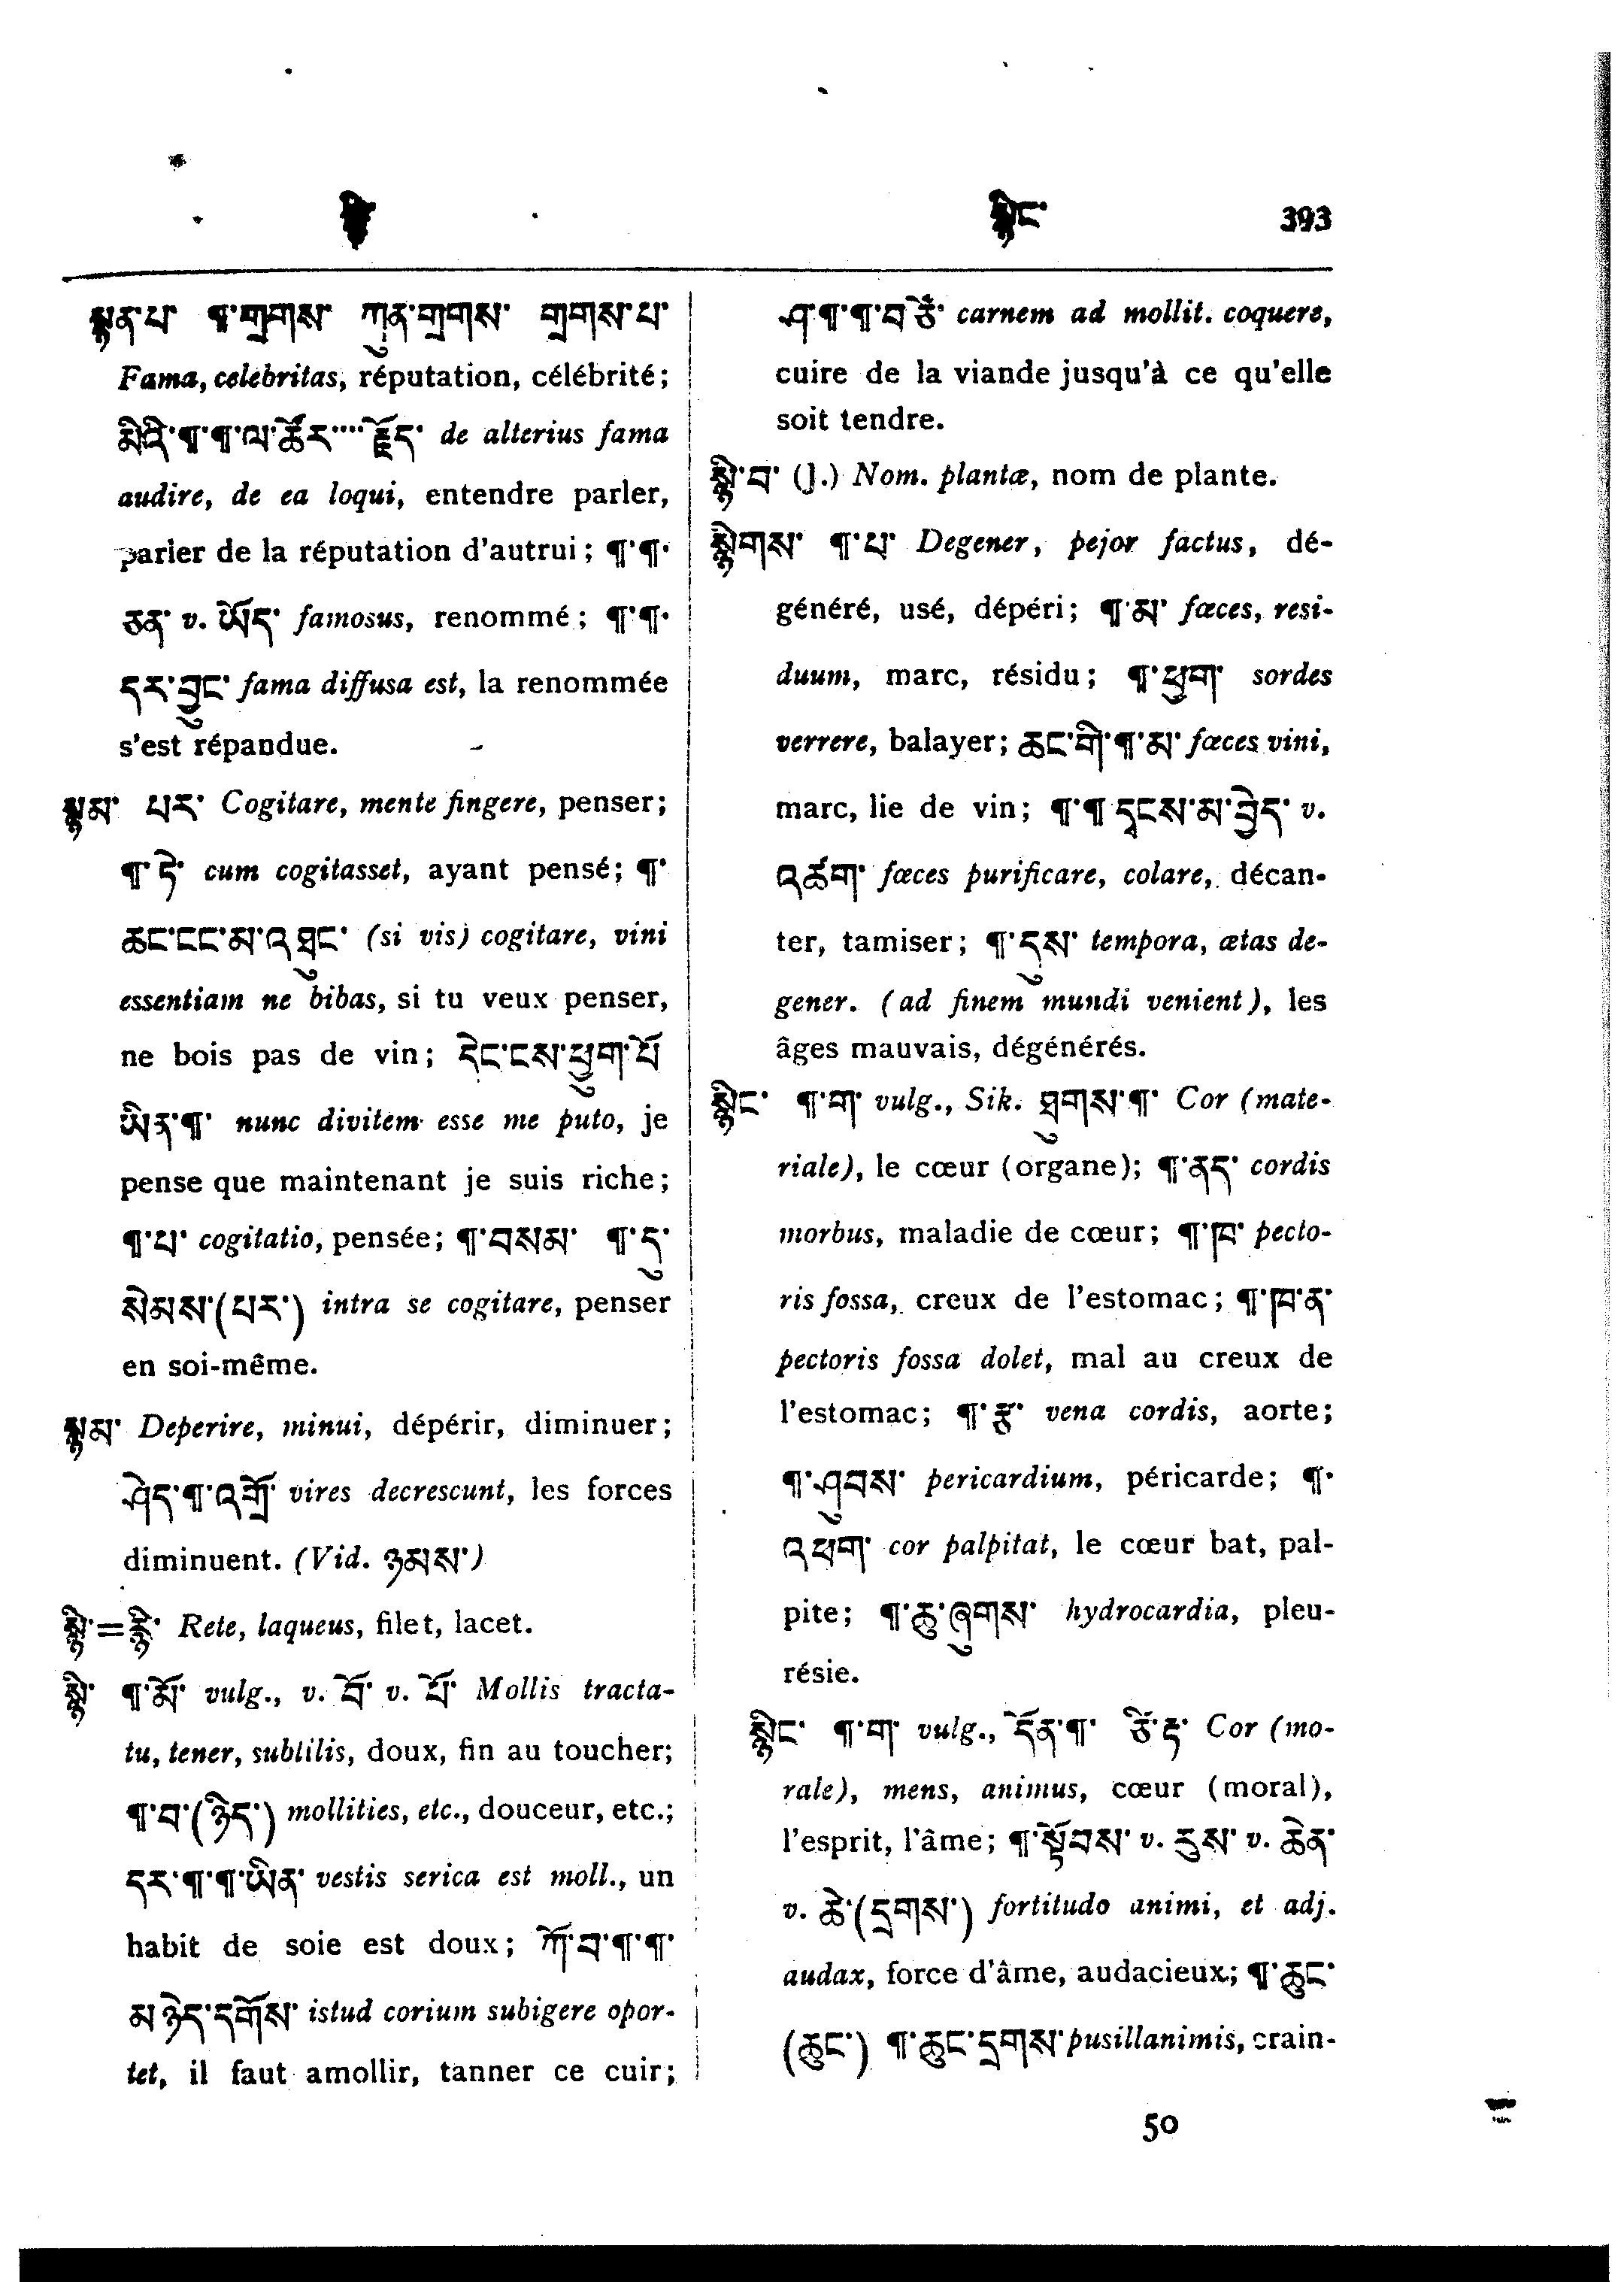 སྙི སྙིང་ 393
སྙན་པ་ ¶་གྲགས་ ཀུན་གྲགས་ གྲགས་པ་
Fama, celebritas, réputation, célébrité;
མིའི་¶་¶་ལ་ཚོར་་་་རྗོད་ de alterius fama
audire, de ea loqui, entendre parler,
parler de la réputation d'autrui; ¶་¶་
ཅན་ v. ཡོད་ famosus, renommé; ¶་¶་
དར་བྱུང་ fama diffusa est, la renommée
s'est répandue.
སྙམ་ པར་ Cogitare, mente fingere, penser;
¶་ཏེ་ cum cogitasset, ayant pensé; ¶་
ཆང་ངང་མ་འཐུང་ (si vis) cogitare, vini
essentiam ne bibas, si tu veux penser,
ne bois pas de vin; དེང་ངས་ཕྱུག་པོ
ཡིན་¶་ nunc divitem esse me puto, je
pense que maintenant je suis riche;
¶་པ་ cogitatio, pensée; ¶་བསམ་ ¶་དུ་
སེམས་(པར་) intra se cogitare, penser
en soi-même.
སྙམ་ Deperire, minui, dépérir, diminuer;
ཤེད་¶་འགྲོ་ vires decrescunt, les forces
diminuent. (Vid. ཉམས་)
སྙི་=རྙི་ Rete, laqueus, filet, lacet.
སྙི་ ¶་མོ་ vulg., v. བོ་ v. པོ་ Mollis tracta-
tu, tener, subtilis, doux, fin au toucher;
¶་བ་(ཉིད་) mollities, etc., douceur, etc.;
དར་¶་¶་ཡིན་ vestis serica est moll., un
habit de soie est doux; ཀོ་བ་¶་¶་
མཉེད་དགོས་ istud corium subigere opor-
tet, il faut amollir, tanner ce cuir;
ཤ་¶་¶་བཙོ་ carnem ad mollit. coquere,
cuire de la viande jusqu'à ce qu'elle
soit tendre.
སྙི་བ་ (J.) Nom. plantæ, nom de plante.
སྙིགས་ ¶་པ་ Degener, pejor factus, dé-
généré, usé, dépéri; ¶་མ་ fæces, resi-
duum, marc, résidu; ¶་ཕྱག་ sordes
verrere, balayer; ཆང་གི་¶་མ་ fæces vini,
marc, lie de vin; ¶་¶ དྭངས་མ་བྱེད་ v.
འཚག་ fæces purificare, colare, décan-
ter, tamiser; ¶་དུས་ tempora, ætas de-
gener. (ad finem mundi venient), les
âges mauvais, dégénérés.
སྙིང་ ¶་ག་ vulg., Sik. ཐུགས་¶་ Cor (mate-
riale), le cœur (organe); ¶་ནད་ cordis
morbus, maladie de cœur; ¶་ཁ་ pecto-
ris fossa, creux de l'estomac; ¶་ཁ་ན་
pectoris fossa dolet, mal au creux de
l'estomac; ¶་རྩ་ vena cordis, aorte;
¶་ཤུབས་ pericardium, péricarde; ¶་
འཕག་ cor palpitat, le cœur bat, pal-
pite; ¶་ཆུ་ཞུགས་ hydrocardia, pleu-
résie.
སྙིང་ ¶་ག་ vulg., དོན་¶་ ཙི་ཏྟ་ Cor (mo-
rale), mens, animus, cœur (moral),
l'esprit, l'âme; ¶་སྟོབས་ v. རུས་ v. ཆེན་
v. ཆེ་(དྲགས་) fortitudo animi, et adj.
audax, force d'âme, audacieux; ¶་ཆུང་
(ཆུང་) ¶་ཆུང་དྲགས་ pusillanimis, crain-
50